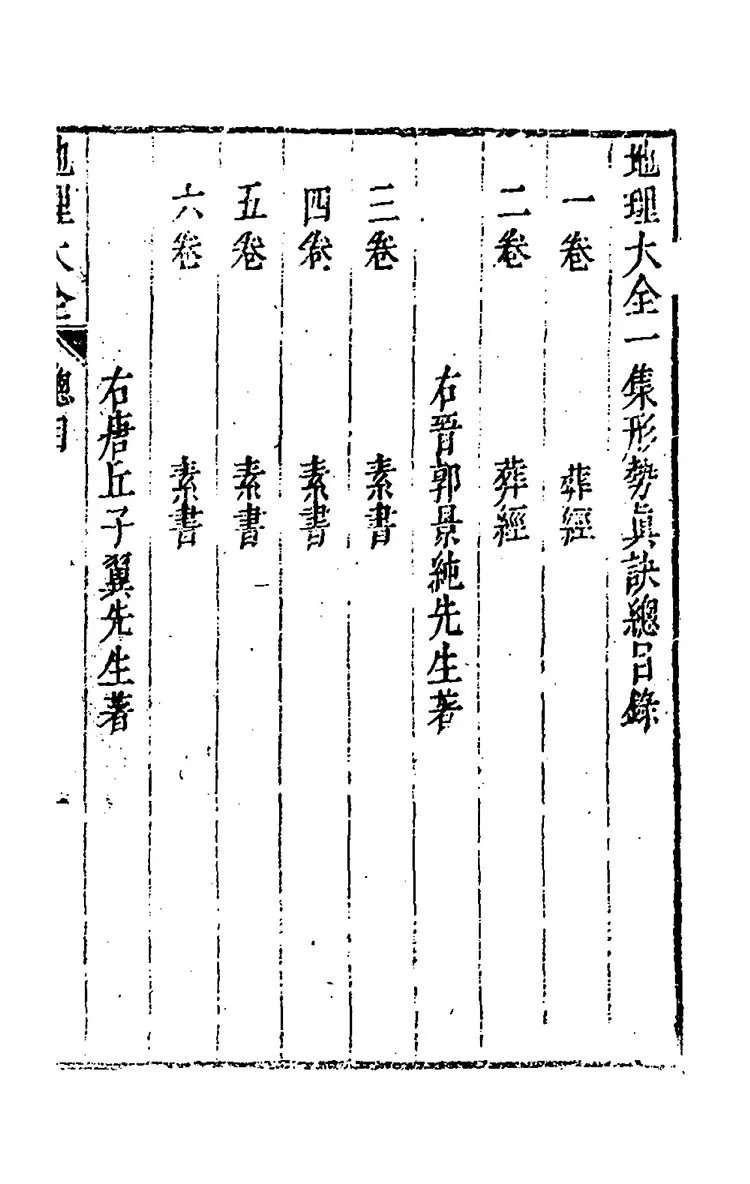 地理大全一集形勢眞訣總目錄
一卷 葬經
二卷 葬經
右晉郭景純先生著
三卷 素書
四卷 素書
五卷 素書
六卷 素書
右唐丘子翼先生著
地理大全 總目 一